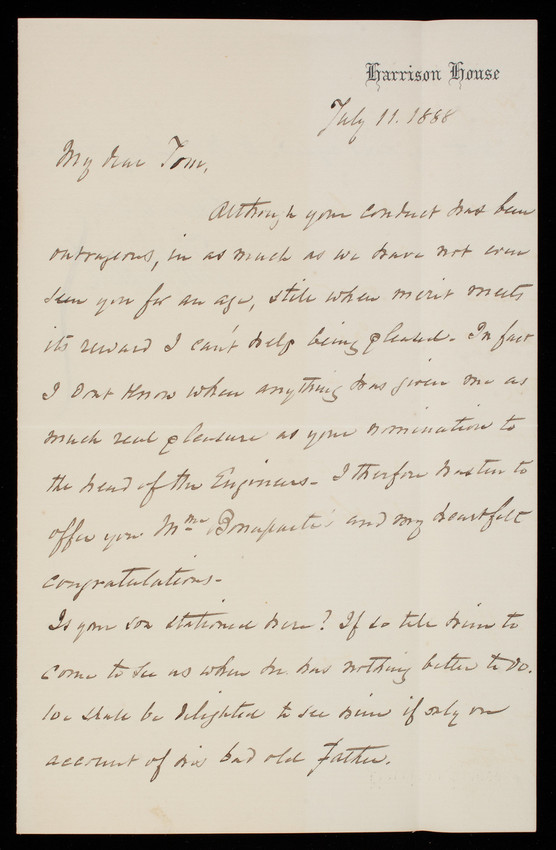 Harrison House
July 11. 1888
My dear Tom,
Although your conduct has been
outrageous, in as much as we have not even
seen you for an age, still when merit meets
its reward I can't help being pleased - In fact
I dont know when anything has given me as
much real pleasure as your nomination to
the head of the Engineers - I therefore hasten to
offer you Mme Bonaparte's and my heartfelt
congratulations -
Is your son stationed here? If so tell him to
come to see us when he has nothing better to do.
We shall be delighted to see him if only on
account of his bad old Father.